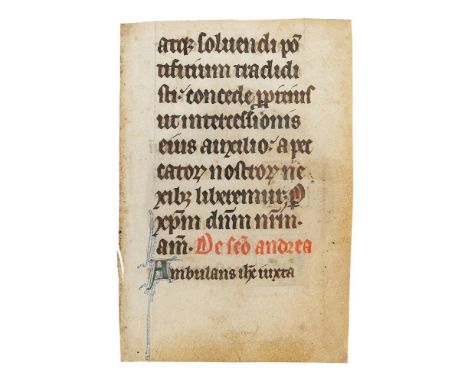 atq; soluendi põ
tificium tradidi
sti· concede ꝓpicius
ut intercessionis
eius auxilio: a pec
catoꝝ nostroꝝ ne
xibꝫ liberemur; P
xp̄m dn̄m nr̄m.
am̄. De sc̄o andrea
Ambulans ih̄c iuxta